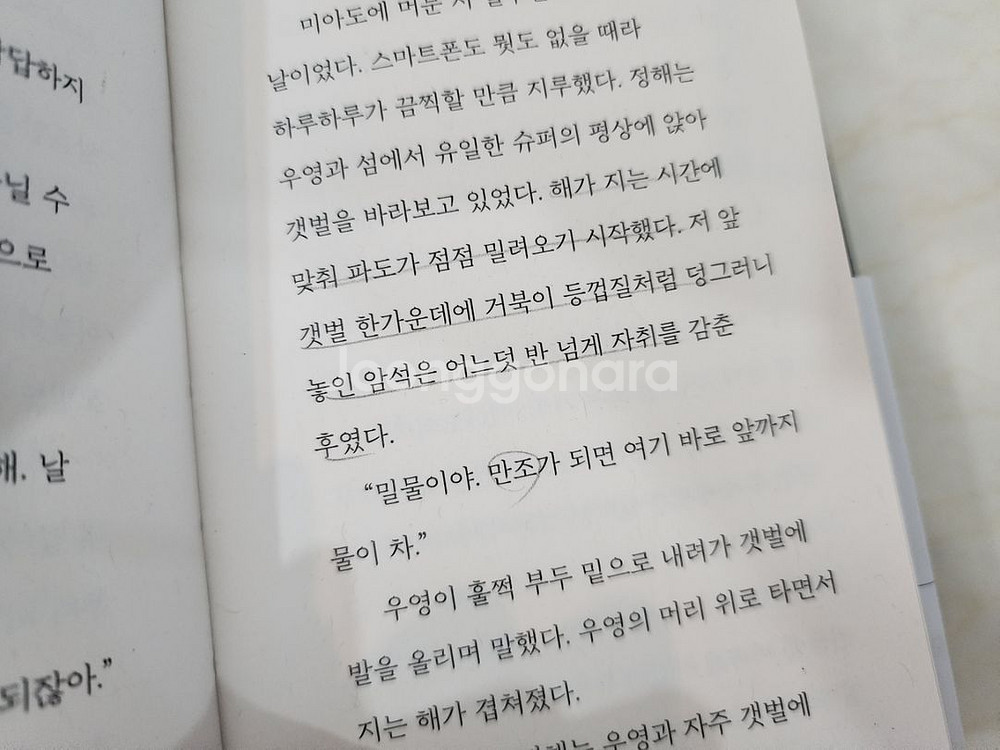 답하지
닐 수
으로
해. 날
되잖아.”
미아도에 머문 지
날이었다. 스마트폰도 뭣도 없을 때라
하루하루가 끔찍할 만큼 지루했다. 정해는
우영과 섬에서 유일한 슈퍼의 평상에 앉아
갯벌을 바라보고 있었다. 해가 지는 시간에
맞춰 파도가 점점 밀려오기 시작했다. 저 앞
갯벌 한가운데에 거북이 등껍질처럼 덩그러니
놓인 암석은 어느덧 반 넘게 자취를 감춘
joonggonara
후였다.
“밀물이야. 만조가 되면 여기 바로 앞까지
물이 차.”
우영이 훌쩍 부두 밑으로 내려가 갯벌에
발을 올리며 말했다. 우영의 머리 위로 타면서
지는 해가 겹쳐졌다.
우영과 자주 갯벌에